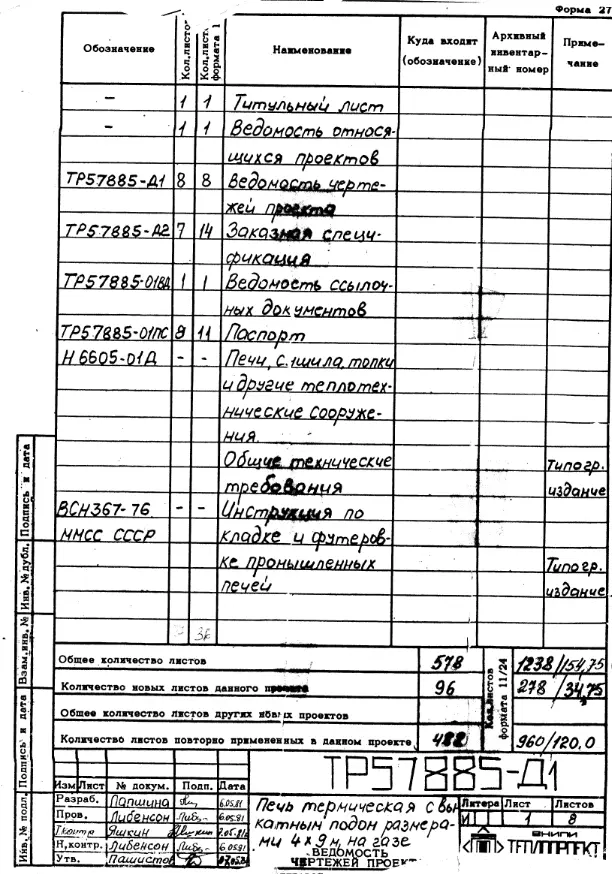 Форма 27
Обозначение
Кол.листов
Кол.лист. формата 1
Наименование
Куда входит (обозначение)
Архивный инвентар-ный номер
Приме-чание
— 1 1 Титульный лист
— 1 1 Ведомость относя-
щихся проектов
ТР57885-Д1 8 8 Ведомость черте-
жей проекта
ТР57885-Д2 7 14 Заказная специ-
фикация
ТР57885-01ВД 1 1 Ведомость ссылоч-
ных документов
ТР57885-01ПС 9 11 Паспорт
Н6605-01Д - - Печи, сушила, топки
и другие теплотех-
нические сооруже-
ния.
Общие технические Типогр.
требования издание
ВСН367-76 - - Инструкция по
ММСС СССР кладке и футеров-
ке промышленных Типогр.
печей издание
Общее количество листов 578 1238/154,75
Количество новых листов данного проекта 96 278/34,75
Общее количество листов других новых проектов
Количество листов повторно примененных в данном проекте 482 960/120,0
Кол.листов формата 11/24
Инв.№ подл.
Подпись и дата
Взам.инв.№
Инв.№ дубл.
Подпись и дата
ТР57885-Д1
Изм Лист № докум. Подп. Дата
Разраб. Лапшина 6.05.81
Пров. Либенсон 6.05.81
Т.контр Яшкин
Н.контр. Либенсон 6.05.81
Утв. Пашистов
Печь термическая с вы-
катным подом размера-
ми 4×9м, на газе
ВЕДОМОСТЬ
ЧЕРТЕЖЕЙ ПРОЕКТА
Литера Лист Листов
И 1 8
ВНИПИ
ТЕПЛОПРОЕКТ